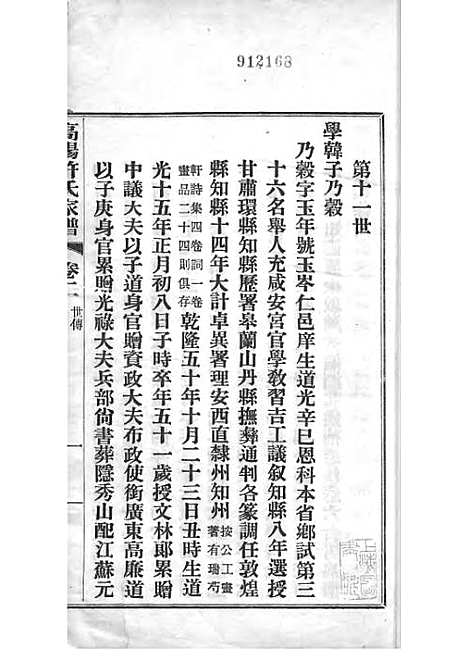 912168
第十一世
學韓子乃穀
乃穀字玉年號玉岑仁邑庠生道光辛巳恩科本省鄉試第三
十六名舉人充咸安宮官學教習吉工議叙知縣八年選授
甘肅環縣知縣歷署皋蘭山丹縣撫彝通判各篆調任敦煌
縣知縣十四年大計卓異署理安西直隸州知州按公工畫
著有瑞芍
軒詩集四卷詞一卷
畫品二十四則俱存乾隆五十年十月二十三日丑時生道
光十五年正月初八日子時卒年五十一歲授文林郎累贈
中議大夫以子道身官贈資政大夫布政使銜廣東高廉道
以子庚身官累贈光祿大夫兵部尙書葬隱秀山配江蘇元
高陽許氏家譜
卷二
世傳
一